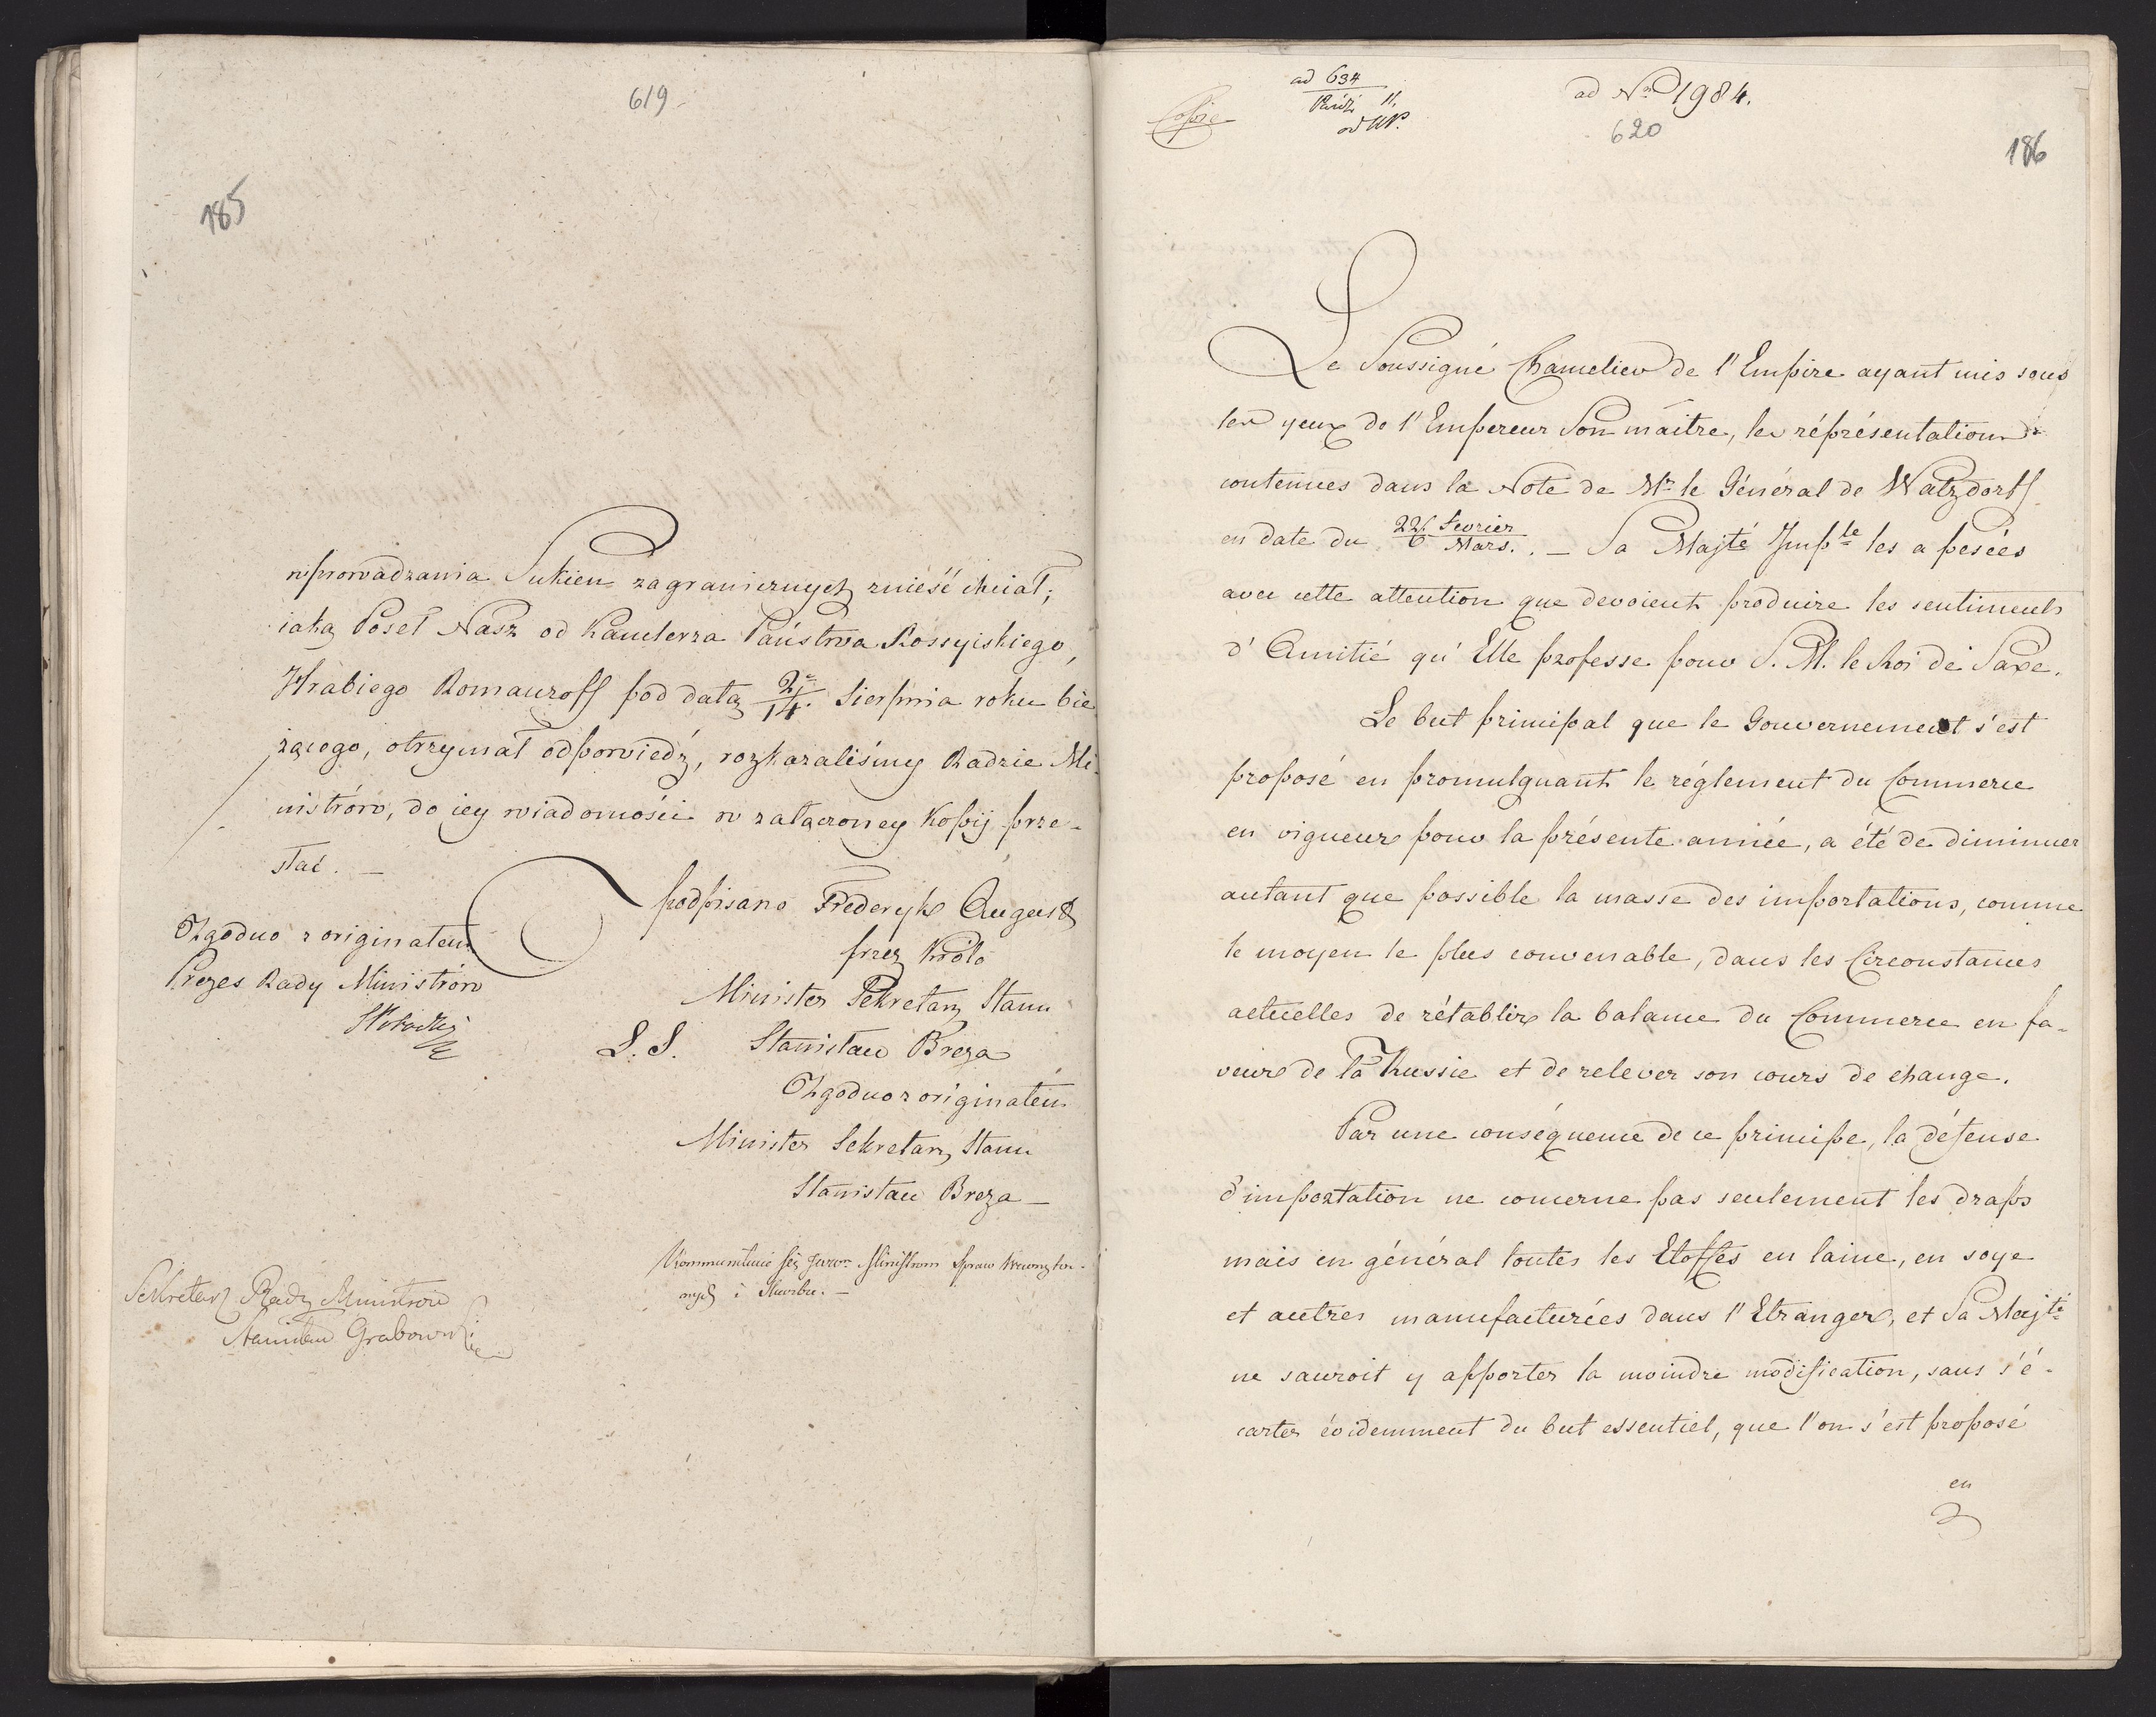 619
185
wprowadzania Sukien zagranicznych znieść chciał;
iaką Poseł Nasz od Kanclerza Państwa Rossyiskiego,
Hrabiego Romanzoff pod datą 2/14. Sierpnia roku bie
żącego, otrzymał odpowiedź, rozkazaliśmy Radzie Mi-
nistrów, do iey wiadomości w załączoney kopij prze-
słać. —
podpisano Frederyk August
przez Króla
Minister Sekretarz Stanu
L. S. Stanisław Breza
Zgodno z originałem
Minister Sekretarz Stanu
Stanisław Breza —
Zgodno z originałem
Prezes Rady Ministrów
Kommunikuie się Ministrom Spraw Wewnętrz-
nych i Skarbu. —
Sekretarz Rady Ministrów
Stanisław Grabowski
Copie
ad 634
ad No 1984.
620
186
Le Soussigné Chancelier de l'Empire ayant mis sous
les yeux de l'Empereur Son maitre, les réprésentations
contenues dans la Note de Mr le Général de Watzdorff
en date du 22. Fevrier / 6 Mars. — Sa Majté Imple les a pesées
avec cette attention que devoient produire les sentiments
d'Amitié qu'Elle professe pour S. M. le Roi de Saxe.
Le but principal que le Gouvernement s'est
proposé en promulguant le réglement du Commerce
en vigueur pour la présente année, a été de diminuer
autant que possible la masse des importations, comme
le moyen le plus convenable, dans les Circonstances
actuelles de rétablir la balance du Commerce en fa-
veur de la Russie et de relever son cours de change.
Par une conséquence de ce principe, la défense
d'importation ne concerne pas seulement les draps
mais en général toutes les Etoffes en laine, en soye
et autres manufacturées dans l'Etranger, et Sa Majté
ne sauroit y apporter la moindre modification, sans s'é-
carter évidemment du but essentiel, que l'on s'est proposé
en